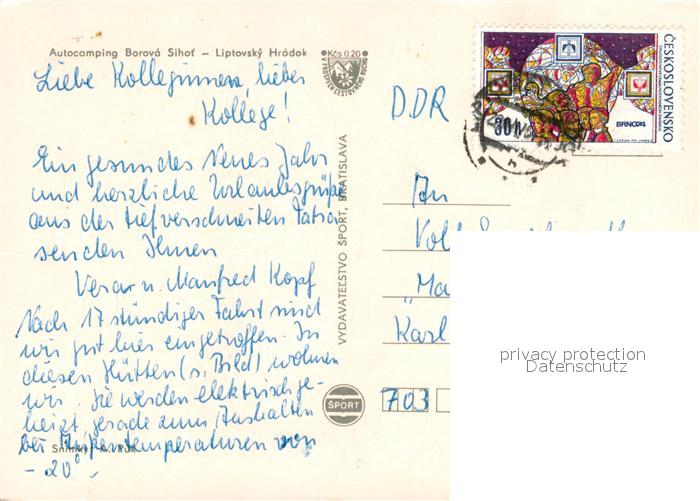 Autocamping Borová Sihoť – Liptovský Hrádok
Kčs 0.20
Liebe Kolleginnen, lieber
Kollege!
Ein gesundes Neues Jahr
und herzliche Urlaubsgrüße
aus der tiefverschneiten Tatra
senden Ihnen
Vera u. Manfred Kopf
Nach 17 stündiger Fahrt sind
wir gut hier eingetroffen. In
diesen Hütten (s. Bild) wohnen
wir. Sie werden elektrisch ge-
heizt, gerade zum Aushalten
bei Außentemperaturen von
- 20°.
VYDAVATEĽSTVO ŠPORT, BRATISLAVA
ŠPORT
ČESKOSLOVENSKO
BRNO 74
30
DDR
An
Karl
703
privacy protection
Datenschutz